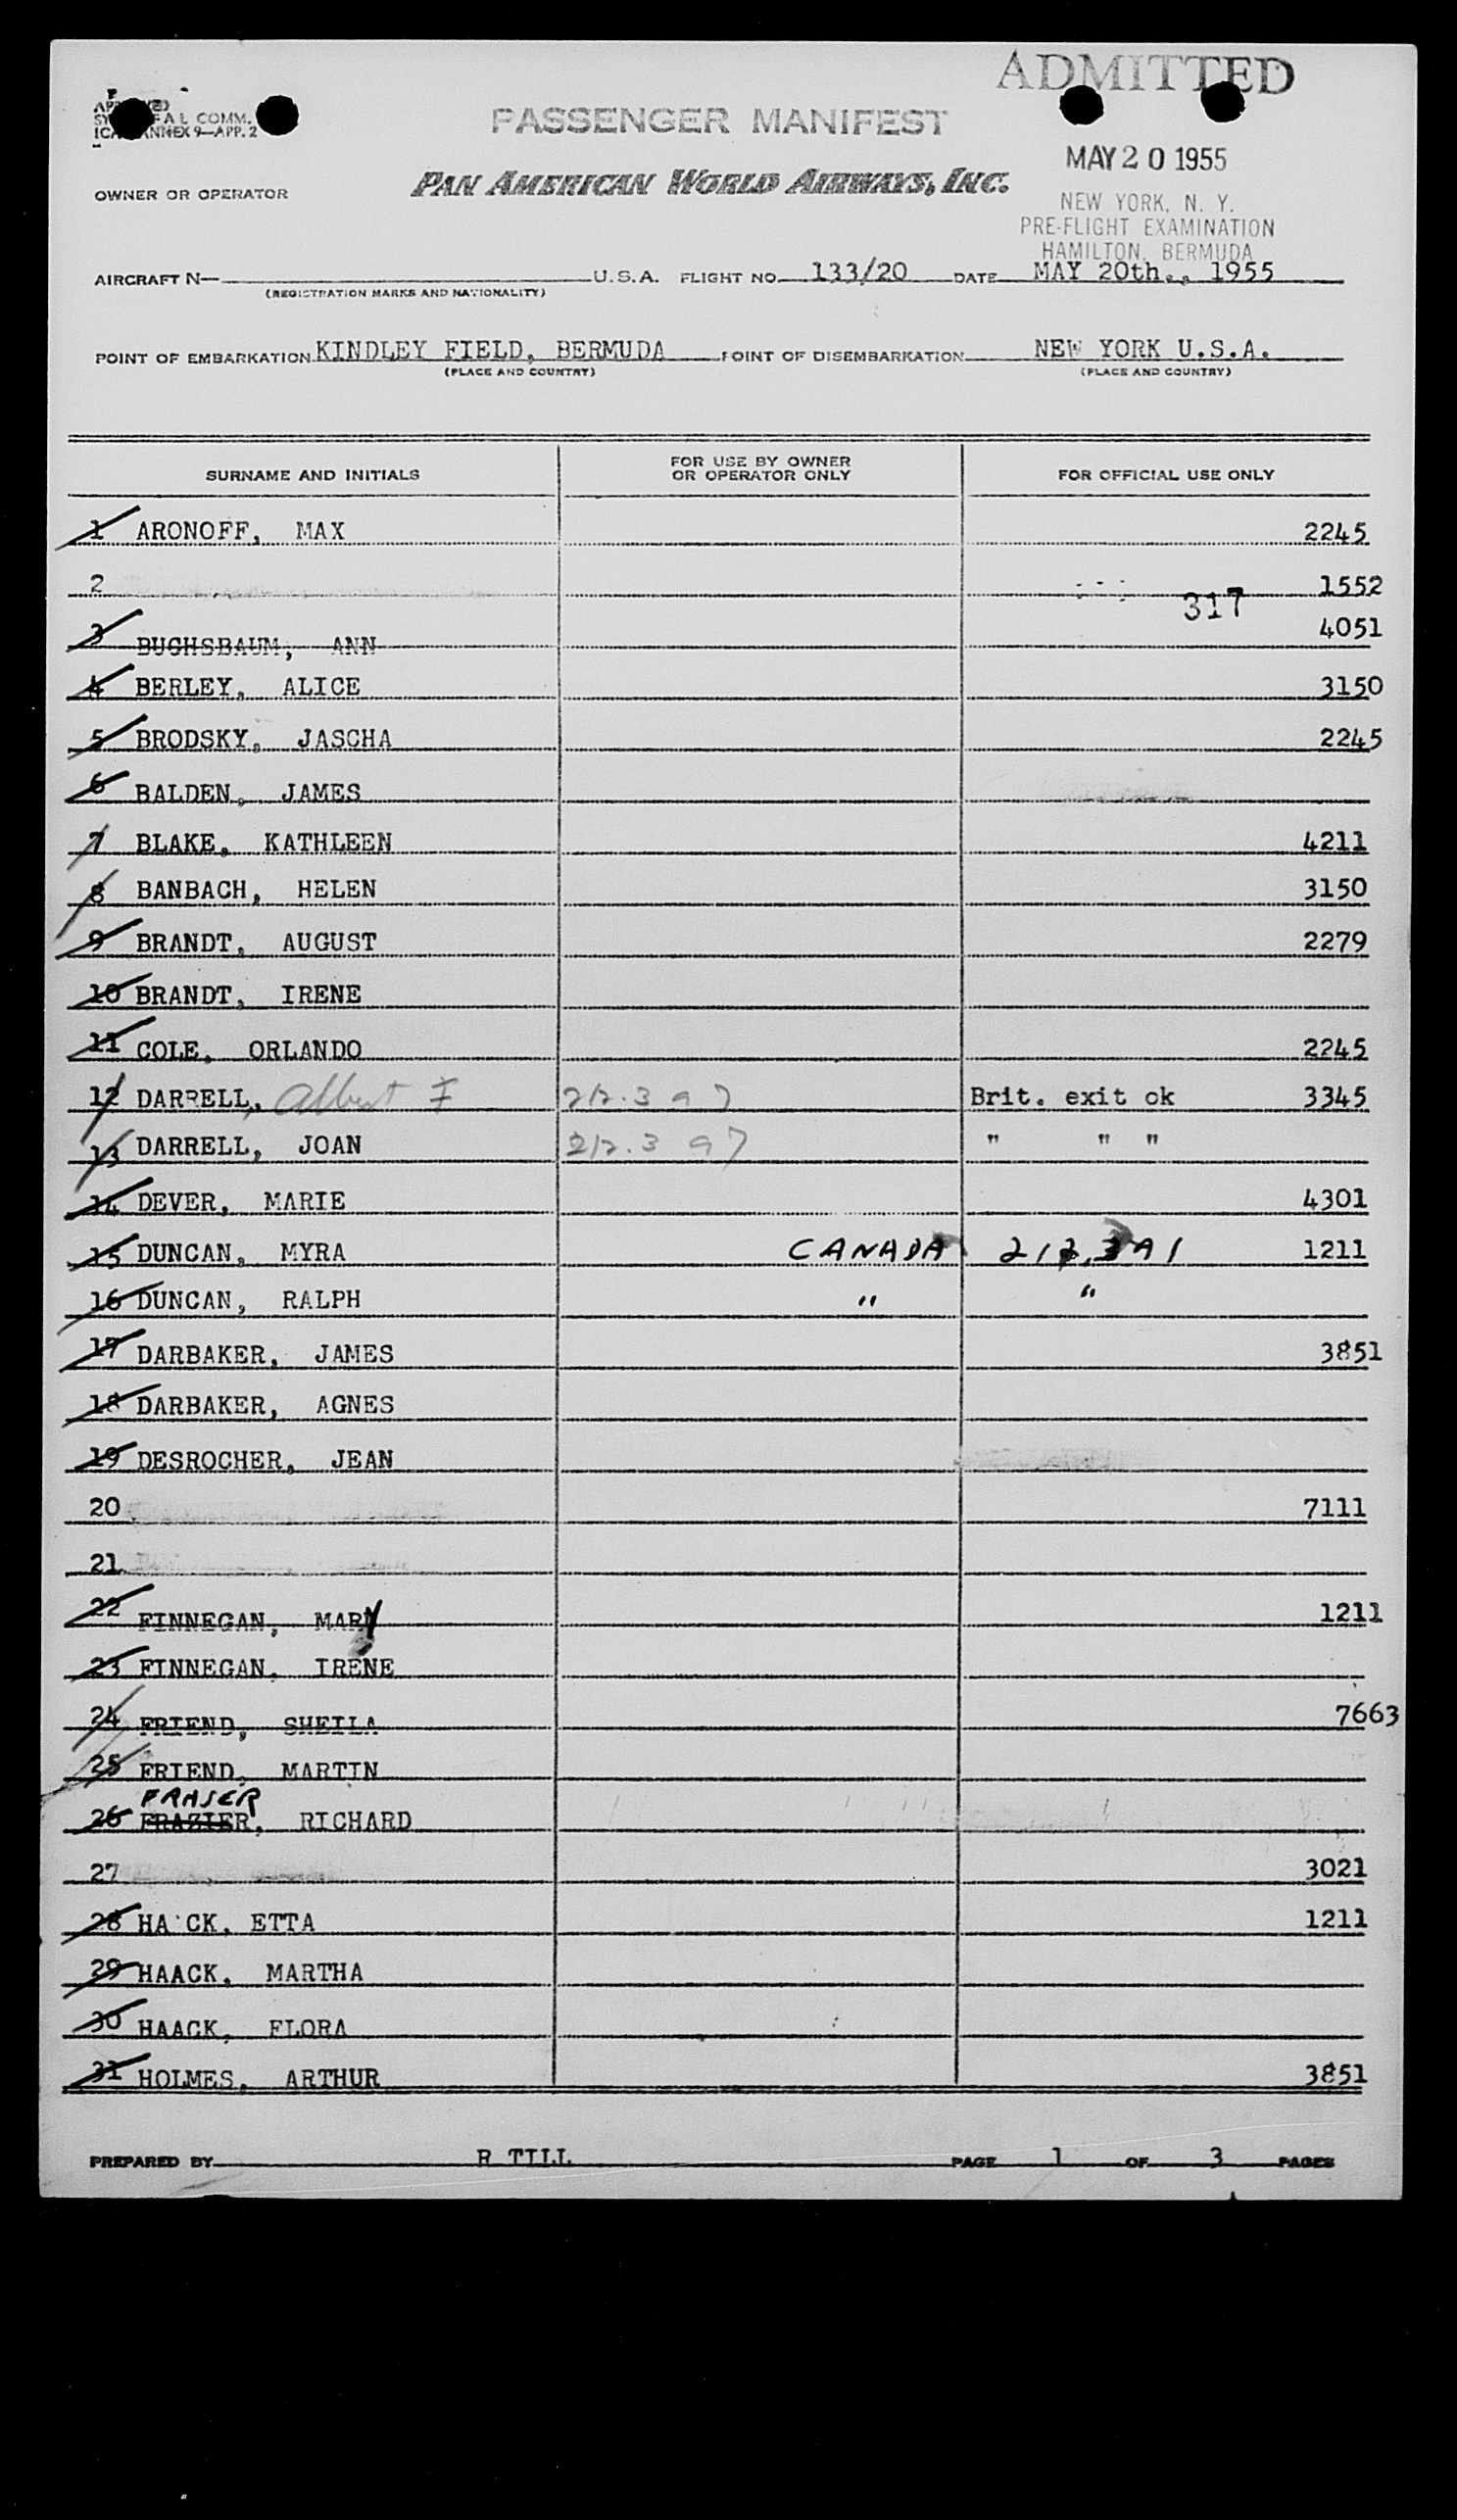 ADMITTED
APPROVED
FAL COMM.
ANNEX 9—APP. 2
PASSENGER MANIFEST
MAY 20 1955
OWNER OR OPERATOR PAN AMERICAN WORLD AIRWAYS, INC.
NEW YORK, N. Y.
PRE-FLIGHT EXAMINATION
HAMILTON, BERMUDA
AIRCRAFT N— U.S.A. FLIGHT NO. 133/20 DATE MAY 20th., 1955
(REGISTRATION MARKS AND NATIONALITY)
POINT OF EMBARKATION KINDLEY FIELD, BERMUDA POINT OF DISEMBARKATION NEW YORK U.S.A.
(PLACE AND COUNTRY) (PLACE AND COUNTRY)
SURNAME AND INITIALS FOR USE BY OWNER OR OPERATOR ONLY FOR OFFICIAL USE ONLY
1 ARONOFF, MAX 2245
2 1552
317
3 BUCHSBAUM, ANN 4051
4 BERLEY, ALICE 3150
5 BRODSKY, JASCHA 2245
6 BALDEN, JAMES
7 BLAKE, KATHLEEN 4211
8 BANBACH, HELEN 3150
9 BRANDT, AUGUST 2279
10 BRANDT, IRENE
11 COLE, ORLANDO 2245
12 DARRELL, Albert F 212.3 a 7 Brit. exit ok 3345
13 DARRELL, JOAN 212.3 a 7 " " "
14 DEVER, MARIE 4301
15 DUNCAN, MYRA CANADA 212.3A1 1211
16 DUNCAN, RALPH " "
17 DARBAKER, JAMES 3851
18 DARBAKER, AGNES
19 DESROCHER, JEAN
20 7111
21
22 FINNEGAN, MARY 1211
23 FINNEGAN, IRENE
24 FRIEND, SHEILA 7663
25 FRIEND, MARTIN
FRASER
26 FRAZIER, RICHARD
27 3021
28 HA CK, ETTA 1211
29 HAACK, MARTHA
30 HAACK, FLORA
31 HOLMES, ARTHUR 3851
PREPARED BY R TILL PAGE 1 OF 3 PAGES